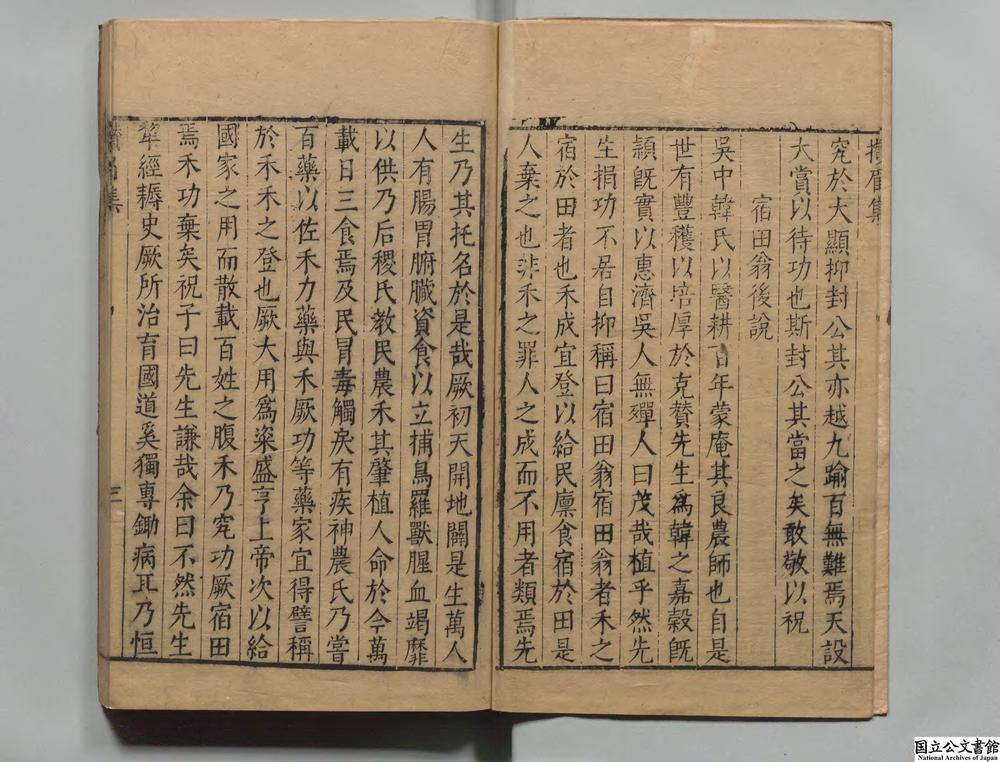 究於大顯抑封公其亦越九踰百無難焉天設
大賞以待功也斯封公其當之矣敢敬以祝
宿田翁後說
吳中韓氏以醫耕百年蒙庵其良農師也自是
世有豐穫以培厚於克贊先生爲韓之嘉穀旣
穎旣實以惠濟吳人無殫人曰茂哉植乎然先
生捐功不居自抑稱曰宿田翁宿田翁者禾之
宿於田者也禾成宜登以給民廪食宿於田是
人棄之也非禾之罪人之成而不用者類焉先
生乃其托名於是哉厥初天開地闢是生萬人
人有腸胃腑臟資食以立捕鳥羅獸腥血竭靡
以供乃后稷氏教民農禾其肇植人命於今萬
載日三食焉及民冒毒觸戾有疾神農氏乃嘗
百藥以佐禾力藥與禾厥功等藥家宜得譬稱
於禾禾之登也厥大用爲粢盛亨上帝次以給
國家之用而散載百姓之腹禾乃究功厥宿田
焉禾功棄矣祝子曰先生謙哉余曰不然先生
犂經耨史厥所治育國道奚獨專鋤病耳乃恒
三
国立公文書館
National Archives of Japan